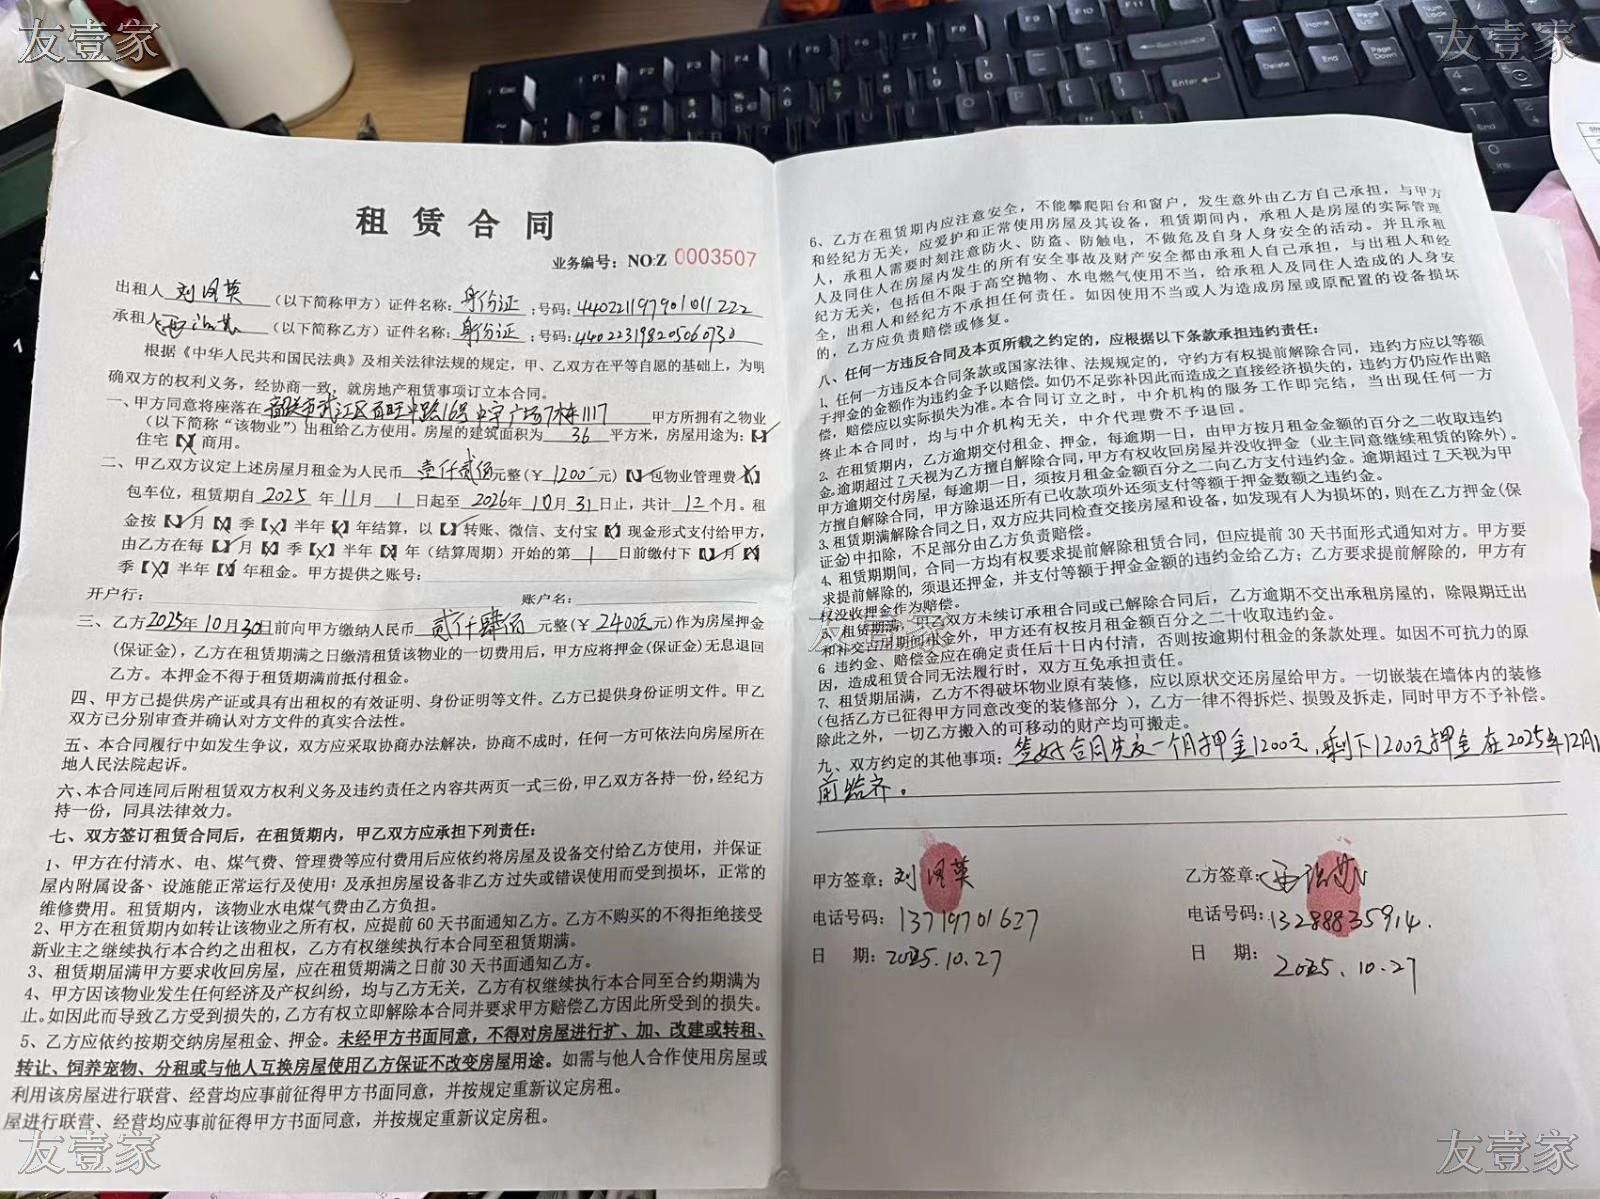 友壹家
友壹家
租赁合同
业务编号：NO:Z 0003507
出租人 刘凤英 （以下简称甲方）证件名称：身份证；号码：440221197901011222
承租人 （以下简称乙方）证件名称：身份证；号码：440223198205060730
根据《中华人民共和国民法典》及相关法律法规的规定，甲、乙双方在平等自愿的基础上，为明
确双方的权利义务，经协商一致，就房地产租赁事项订立本合同。
一、甲方同意将座落在 韶关市武江区百旺中路16号中宇广场7栋1117 甲方所拥有之物业
（以下简称“该物业”）出租给乙方使用。房屋的建筑面积为 36 平方米，房屋用途为：【✓】
住宅【✗】商用。
二、甲乙双方议定上述房屋月租金为人民币 壹仟贰佰 元整（￥ 1200 元）【✓】包物业管理费【✗】
包车位，租赁期自 2025 年 11 月 1 日起至 2026 年 10 月 31 日止，共计 12 个月。租
金按【✓】月【✗】季【✗】半年【✗】年结算，以【✓】转账、微信、支付宝【✗】现金形式支付给甲方，
由乙方在每【✓】月【✗】季【✗】半年【✗】年（结算周期）开始的第 1 日前缴付下【✓】月【✗】
季【✗】半年【✗】年租金。甲方提供之账号：
开户行： 账户名：
三、乙方 2025 年 10 月 30 日前向甲方缴纳人民币 贰仟肆佰 元整（￥ 2400元 元）作为房屋押金
（保证金），乙方在租赁期满之日缴清租赁该物业的一切费用后，甲方应将押金（保证金）无息退回
乙方。本押金不得于租赁期满前抵付租金。
四、甲方已提供房产证或具有出租权的有效证明、身份证明等文件。乙方已提供身份证明文件。甲乙
双方已分别审查并确认对方文件的真实合法性。
五、本合同履行中如发生争议，双方应采取协商办法解决，协商不成时，任何一方可依法向房屋所在
地人民法院起诉。
六、本合同连同后附租赁双方权利义务及违约责任之内容共两页一式三份，甲乙双方各持一份，经纪方
持一份，同具法律效力。
七、双方签订租赁合同后，在租赁期内，甲乙双方应承担下列责任：
1、甲方在付清水、电、煤气费、管理费等应付费用后应依约将房屋及设备交付给乙方使用，并保证
屋内附属设备、设施能正常运行及使用；及承担房屋设备非乙方过失或错误使用而受到损坏，正常的
维修费用。租赁期内，该物业水电煤气费由乙方负担。
2、甲方在租赁期内如转让该物业之所有权，应提前60天书面通知乙方。乙方不购买的不得拒绝接受
新业主之继续执行本合约之出租权，乙方有权继续执行本合同至租赁期满。
3、租赁期届满甲方要求收回房屋，应在租赁期满之日前30天书面通知乙方。
4、甲方因该物业发生任何经济及产权纠纷，均与乙方无关，乙方有权继续执行本合同至合约期满为
止。如因此而导致乙方受到损失的，乙方有权立即解除本合同并要求甲方赔偿乙方因此所受到的损失。
5、乙方应依约按期交纳房屋租金、押金。未经甲方书面同意，不得对房屋进行扩、加、改建或转租、
转让、饲养宠物、分租或与他人互换房屋使用乙方保证不改变房屋用途。如需与他人合作使用房屋或
利用该房屋进行联营、经营均应事前征得甲方书面同意，并按规定重新议定房租。
屋进行联营、经营均应事前征得甲方书面同意，并按规定重新议定房租。
6、乙方在租赁期内应注意安全，不能攀爬阳台和窗户，发生意外由乙方自己承担，与甲方
和经纪方无关，应爱护和正常使用房屋及其设备，租赁期间内，承租人是房屋的实际管理
人，承租人需要时刻注意防火、防盗、防触电，不做危及自身人身安全的活动。并且承租
人及同住人在房屋内发生的所有安全事故及财产安全都由承租人自己承担，与出租人和经
纪方无关，包括但不限于高空抛物、水电燃气使用不当，给承租人及同住人造成的人身安
全，出租人和经纪方不承担任何责任。如因使用不当或人为造成房屋或原配置的设备损坏
的，乙方应负责赔偿或修复。
八、任何一方违反合同及本页所载之约定的，应根据以下条款承担违约责任：
1、任何一方违反本合同条款或国家法律、法规规定的，守约方有权提前解除合同，违约方应以等额
于押金的金额作为违约金予以赔偿。如仍不足弥补因此而造成之直接经济损失的，违约方仍应作出赔
偿，赔偿应以实际损失为准。本合同订立之时，中介机构的服务工作即完结，当出现任何一方
终止本合同时，均与中介机构无关，中介代理费不予退回。
2、在租赁期内，乙方逾期交付租金、押金，每逾期一日，由甲方按月租金金额的百分之二收取违约
金。逾期超过7天视为乙方擅自解除合同，甲方有权收回房屋并没收押金（业主同意继续租赁的除外）。
甲方逾期交付房屋，每逾期一日，须按月租金金额百分之二向乙方支付违约金。逾期超过7天视为甲
方擅自解除合同，甲方除退还所有已收款项外还须支付等额于押金数额之违约金。
3、租赁期满解除合同之日，双方应共同检查交接房屋和设备，如发现有人为损坏的，则在乙方押金（保
证金）中扣除，不足部分由乙方负责赔偿。
4、租赁期期间，合同一方均有权要求提前解除租赁合同，但应提前30天书面形式通知对方。甲方要
求提前解除的，须退还押金，并支付等额于押金金额的违约金给乙方；乙方要求提前解除的，甲方有
权没收押金作为赔偿。
租赁期满，甲乙双方未续订承租合同或已解除合同后，乙方逾期不交出承租房屋的，除限期迁出
和补交占用期间租金外，甲方还有权按月租金额百分之二十收取违约金。
友壹家
6 违约金、赔偿金应在确定责任后十日内付清，否则按逾期付租金的条款处理。如因不可抗力的原
因，造成租赁合同无法履行时，双方互免承担责任。
7、租赁期届满，乙方不得破坏物业原有装修，应以原状交还房屋给甲方。一切嵌装在墙体内的装修
（包括乙方已征得甲方同意改变的装修部分），乙方一律不得拆烂、损毁及拆走，同时甲方不予补偿。
除此之外，一切乙方搬入的可移动的财产均可搬走。
九、双方约定的其他事项：签好合同先交一个月押金1200元，剩下1200元押金在2025年12月1
前给齐。
甲方签章：刘凤英
电话号码：13719701627
日 期：2025.10.27
乙方签章：
电话号码：13288835914.
日 期：2025.10.27
友壹家
友壹家